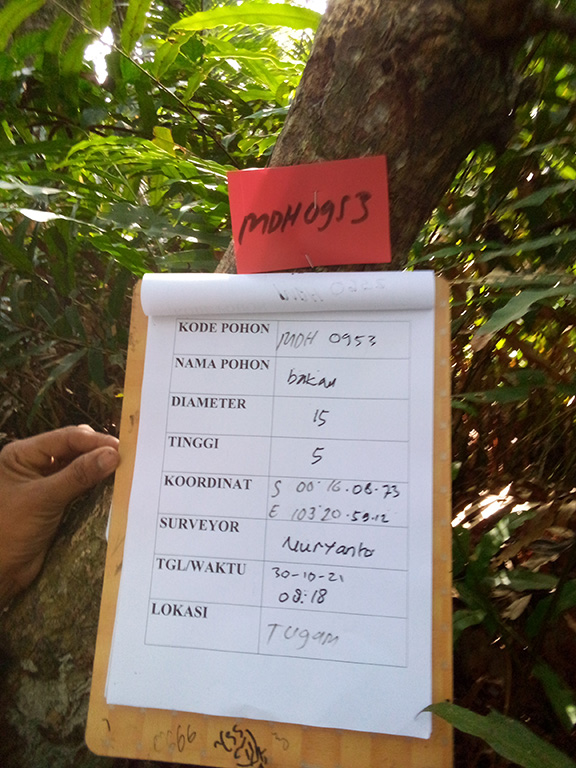 MDH0953
KODE POHON MDH 0953
NAMA POHON bakau
DIAMETER 15
TINGGI 5
KOORDINAT S 00°16.08.73
E 103°20.59.12
SURVEYOR Nuryanto
TGL/WAKTU 30-10-21
08:18
LOKASI Tugam